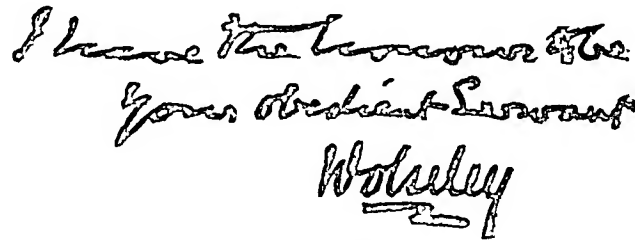 I have the honour to be
Your obedient Servant
Wolseley